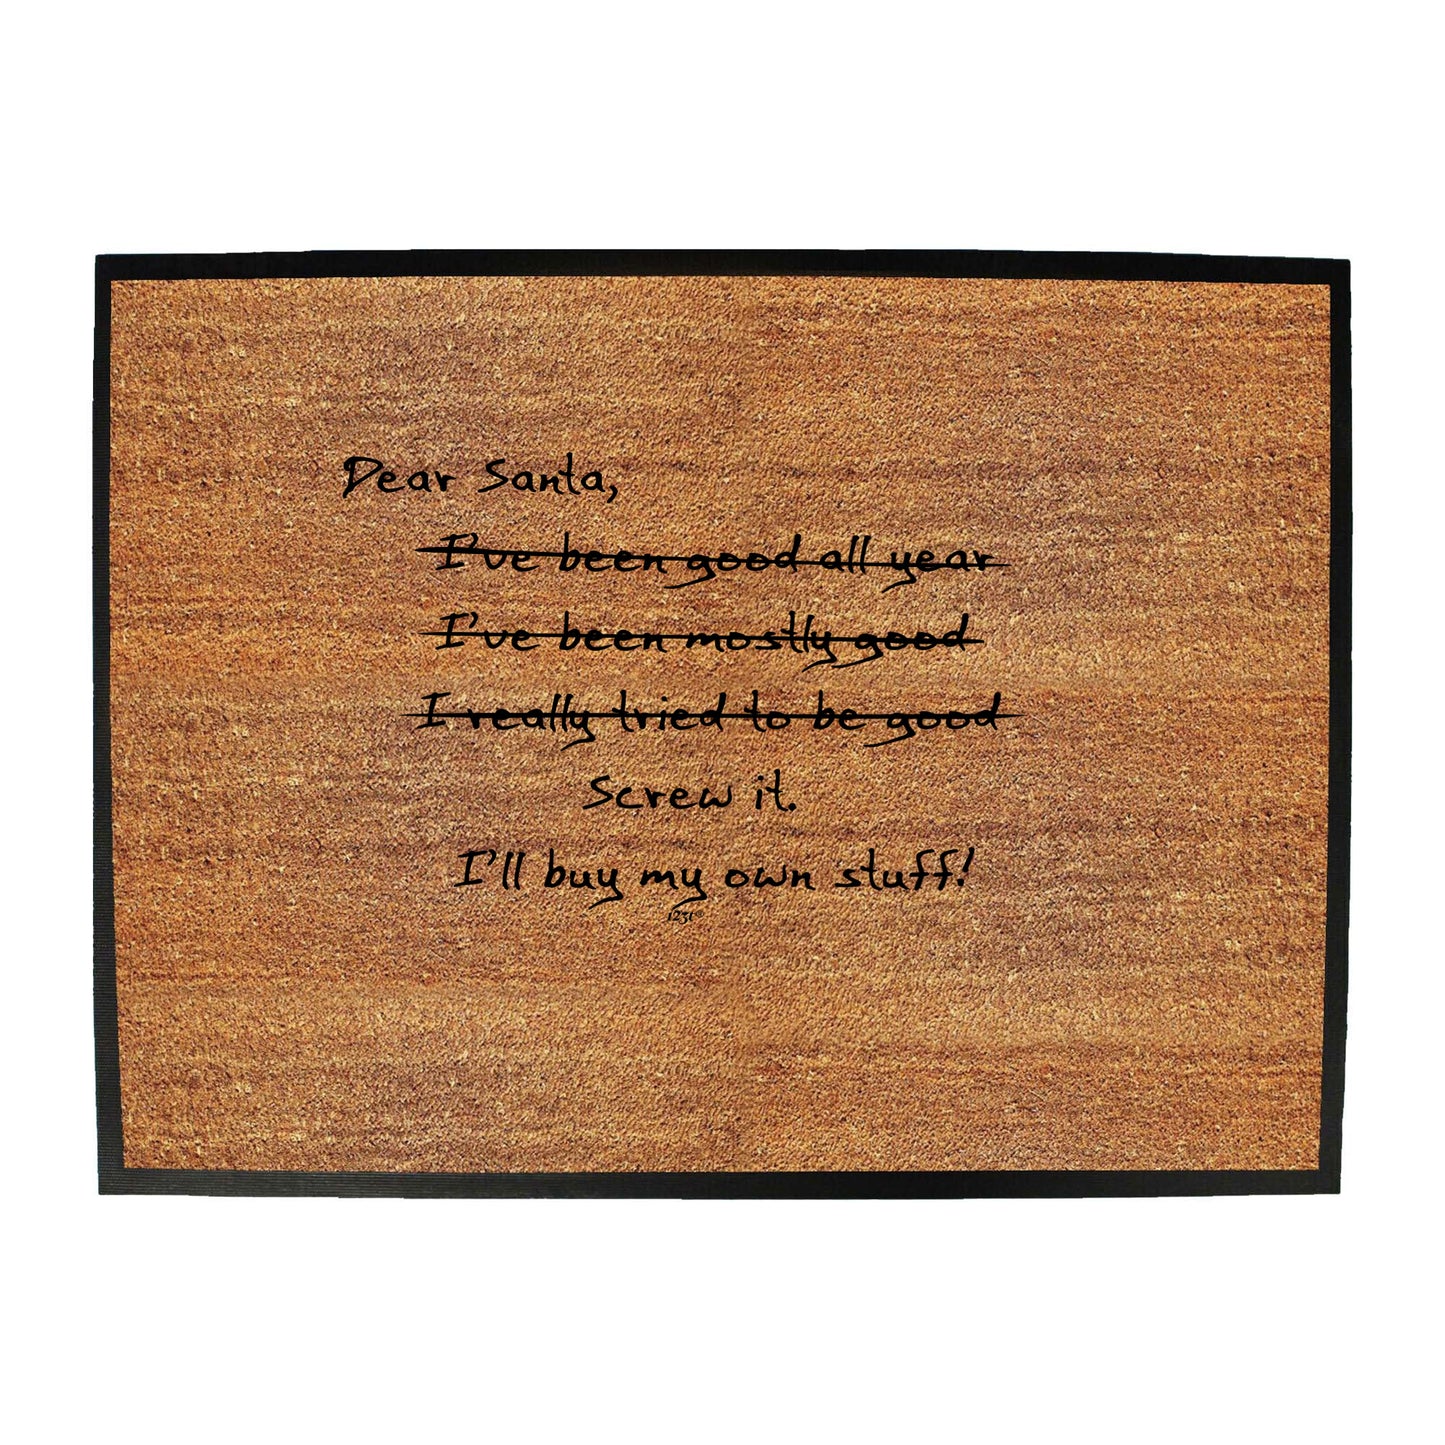 Dear Santa,
I've been good all year
I've been mostly good
I really tried to be good
Screw it.
I'll buy my own stuff!
123t®